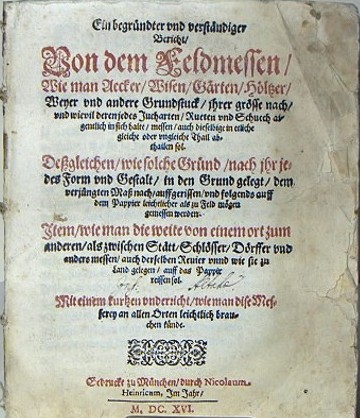 Ein begründter vnd verständiger
Bericht/
Von dem Feldmessen/
Wie man Aecker/ Wisen/ Gärten/ Höltzer/
Weyer vnd andere Grundstuck/ jhrer grösse nach/
vnd wievil deren jedes Jucharten/ Rueten vnd Schuech ai-
gentlich in sich halte/ messen/ auch dieselbige in etliche
gleiche oder vngleiche Thail ab-
thailen sol.
Deßgleichen/ wie solche Gründ/ nach jhr je-
des Form vnd Gestalt/ in den Grund gelegt/ dem
verjüngten Maß nach/ auffgerissen/ vnd folgends auff
dem Pappier leichtlicher als zu Feld mögen
gemessen werden.
Item/ wie man die weite von einem ort zum
anderen/ als zwischen Stätt/ Schlösser/ Dörffer vnd
anders messen/ auch derselben Revier vnnd wie sie zu
Land gelegen/ auff das Pappir
reissen sol.
Mit einem kurtzen vnderricht/ wie man dise Meß-
serey an allen Orten leichtlich brau-
chen künde.
Gedruckt zu München/ durch Nicolaum
Heinricum, Im Jahr/
M. DC. XVI.